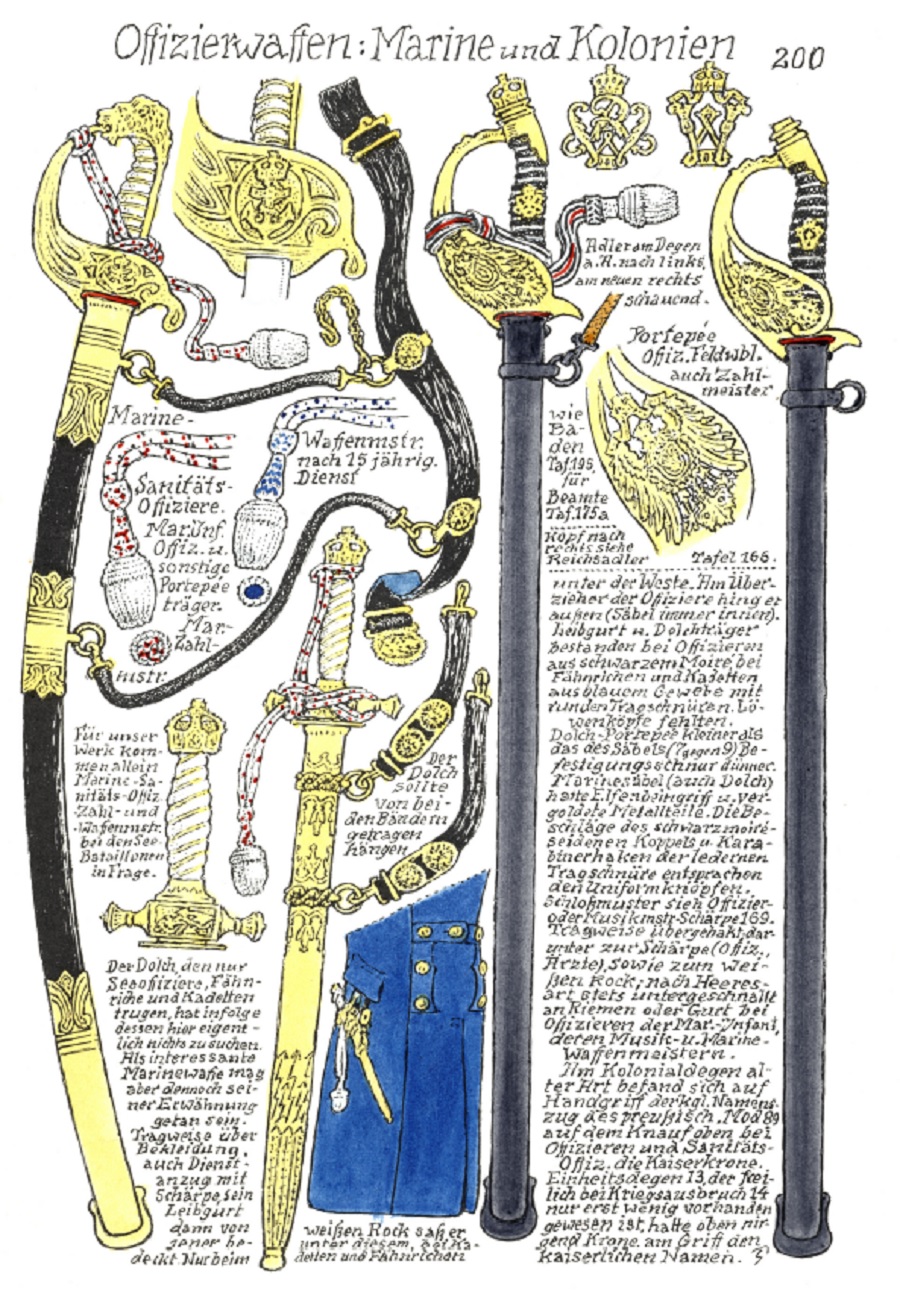 Offizierwaffen: Marine und Kolonien
200
Adler am Degen
a. A. nach links,
am neuen rechts
schauend.
Portepée
Offiz. Feldwbl.
auch Zahl-
meister.
Marine-
Sanitäts-
Offiziere.
Mar. Inf.
Offiz. u.
sonstige
Portepée
träger.
Mar.-
Zahl-
mstr.
Waffenmstr.
nach 15 jährig.
Dienst
wie
Ba-
den
Taf. 195,
für
Beamte
Taf. 175a
Kopf nach
rechts siehe
Reichsadler
Tafel 166.
Für unser
Werk kom-
men allein
Marine-Sa-
nitäts-Offiz.
Zahl- und
Waffenmstr.
bei den See-
Bataillonen
in Frage.
Der
Dolch
sollte
von bei-
den Bändern
getragen
hängen
Der Dolch, den nur
Seeoffiziere, Fähn-
riche und Kadetten
trugen, hat infolge
dessen hier eigent-
lich nichts zu suchen.
Als interessante
Marinewaffe mag
aber dennoch sei-
ner Erwähnung
getan sein.
Tragweise über
Bekleidung,
auch Dienst-
anzug mit
Schärpe, sein
Leibgurt
dann von
jener be-
deckt. Nur beim
weißen Rock saß er
unter diesem, bei Ka-
detten und Fähnrichen
unter der Weste. Am Über-
zieher der Offiziere hing er
außen (Säbel immer innen).
Leibgurt u. Dolchträger
bestanden bei Offizieren
aus schwarzem Moiré, bei
Fähnrichen und Kadetten
aus blauem Gewebe mit
runden Tragschnüren. Lö-
wenköpfe fehlten.
Dolch-Portepée kleiner als
das des Säbels (7 gegen 9) Be-
festigungsschnur dünner.
Marinesäbel (auch Dolch)
hatte Elfenbeingriff u. ver-
goldete Metallteile. Die Be-
schläge des schwarzmoiré-
seidenen Koppels u. Kara-
binerhaken der ledernen
Tragschnüre entsprachen
den Uniformknöpfen.
Schloßmuster sieh Offizier-
oder Musikmstr-Schärpe 169.
Tragweise übergehakt, dar-
unter zur Schärpe (Offiz.,
Ärzte), sowie zum wei-
ßen Rock; nach Heeres-
art stets untergeschnallt
an Riemen oder Gurt bei
Offizieren der Mar.-Infant,
deren Musik- u. Marine-
Waffenmeistern.
Am Kolonialdegen al-
ter Art befand sich auf
Handgriff der kgl. Namens-
zug des preußisch. Mod 89
auf dem Knauf oben bei
Offizieren und Sanitäts-
Offiz. die Kaiserkrone.
Einheitsdegen 13, der frei-
lich bei Kriegsausbruch 14
nur erst wenig vorhanden
gewesen ist, hatte oben nir-
gend Krone, am Griff den
Kaiserlichen Namen.